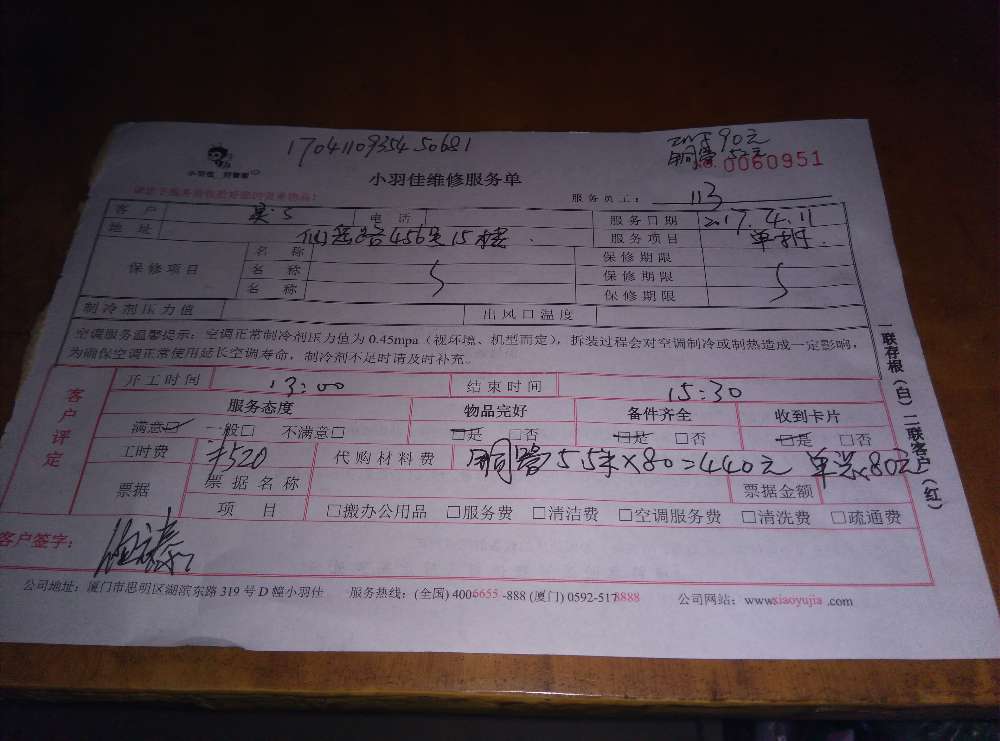 17041109354 50681
90元
铜管
小羽佳 好管家
0060951
小羽佳维修服务单
服务员工: 113
客户 吴 S 电话 服务日期 2017.4.11
地址 456号15楼 服务项目 单拆
保修项目 名称 保修期限
名称 S 保修期限 S
名称 保修期限
制冷剂压力值 出风口温度
空调服务温馨提示:空调正常制冷剂压力值为 0.45mpa(视环境、机型而定),拆装过程会对空调制冷或制热造成一定影响,
为确保空调正常使用延长空调寿命,制冷剂不足时请及时补充。
一联存根(白)二联客户(红)
客户评定
开工时间 13:00 结束时间 15:30
服务态度 物品完好 备件齐全 收到卡片
满意☑ 一般□ 不满意□ □是 □否 □是 □否 □是 □否
工时费 ¥520 代购材料费 铜管5.5米×80=440元 80元
票据 票据名称 票据金额
项目 □搬办公用品 □服务费 □清洁费 □空调服务费 □清洗费 □疏通费
客户签字:
公司地址:厦门市思明区湖滨东路 319 号 D 幢小羽佳 服务热线:(全国) 4006655-888 (厦门) 0592-5178888 公司网站:www.xiaoyujia.com